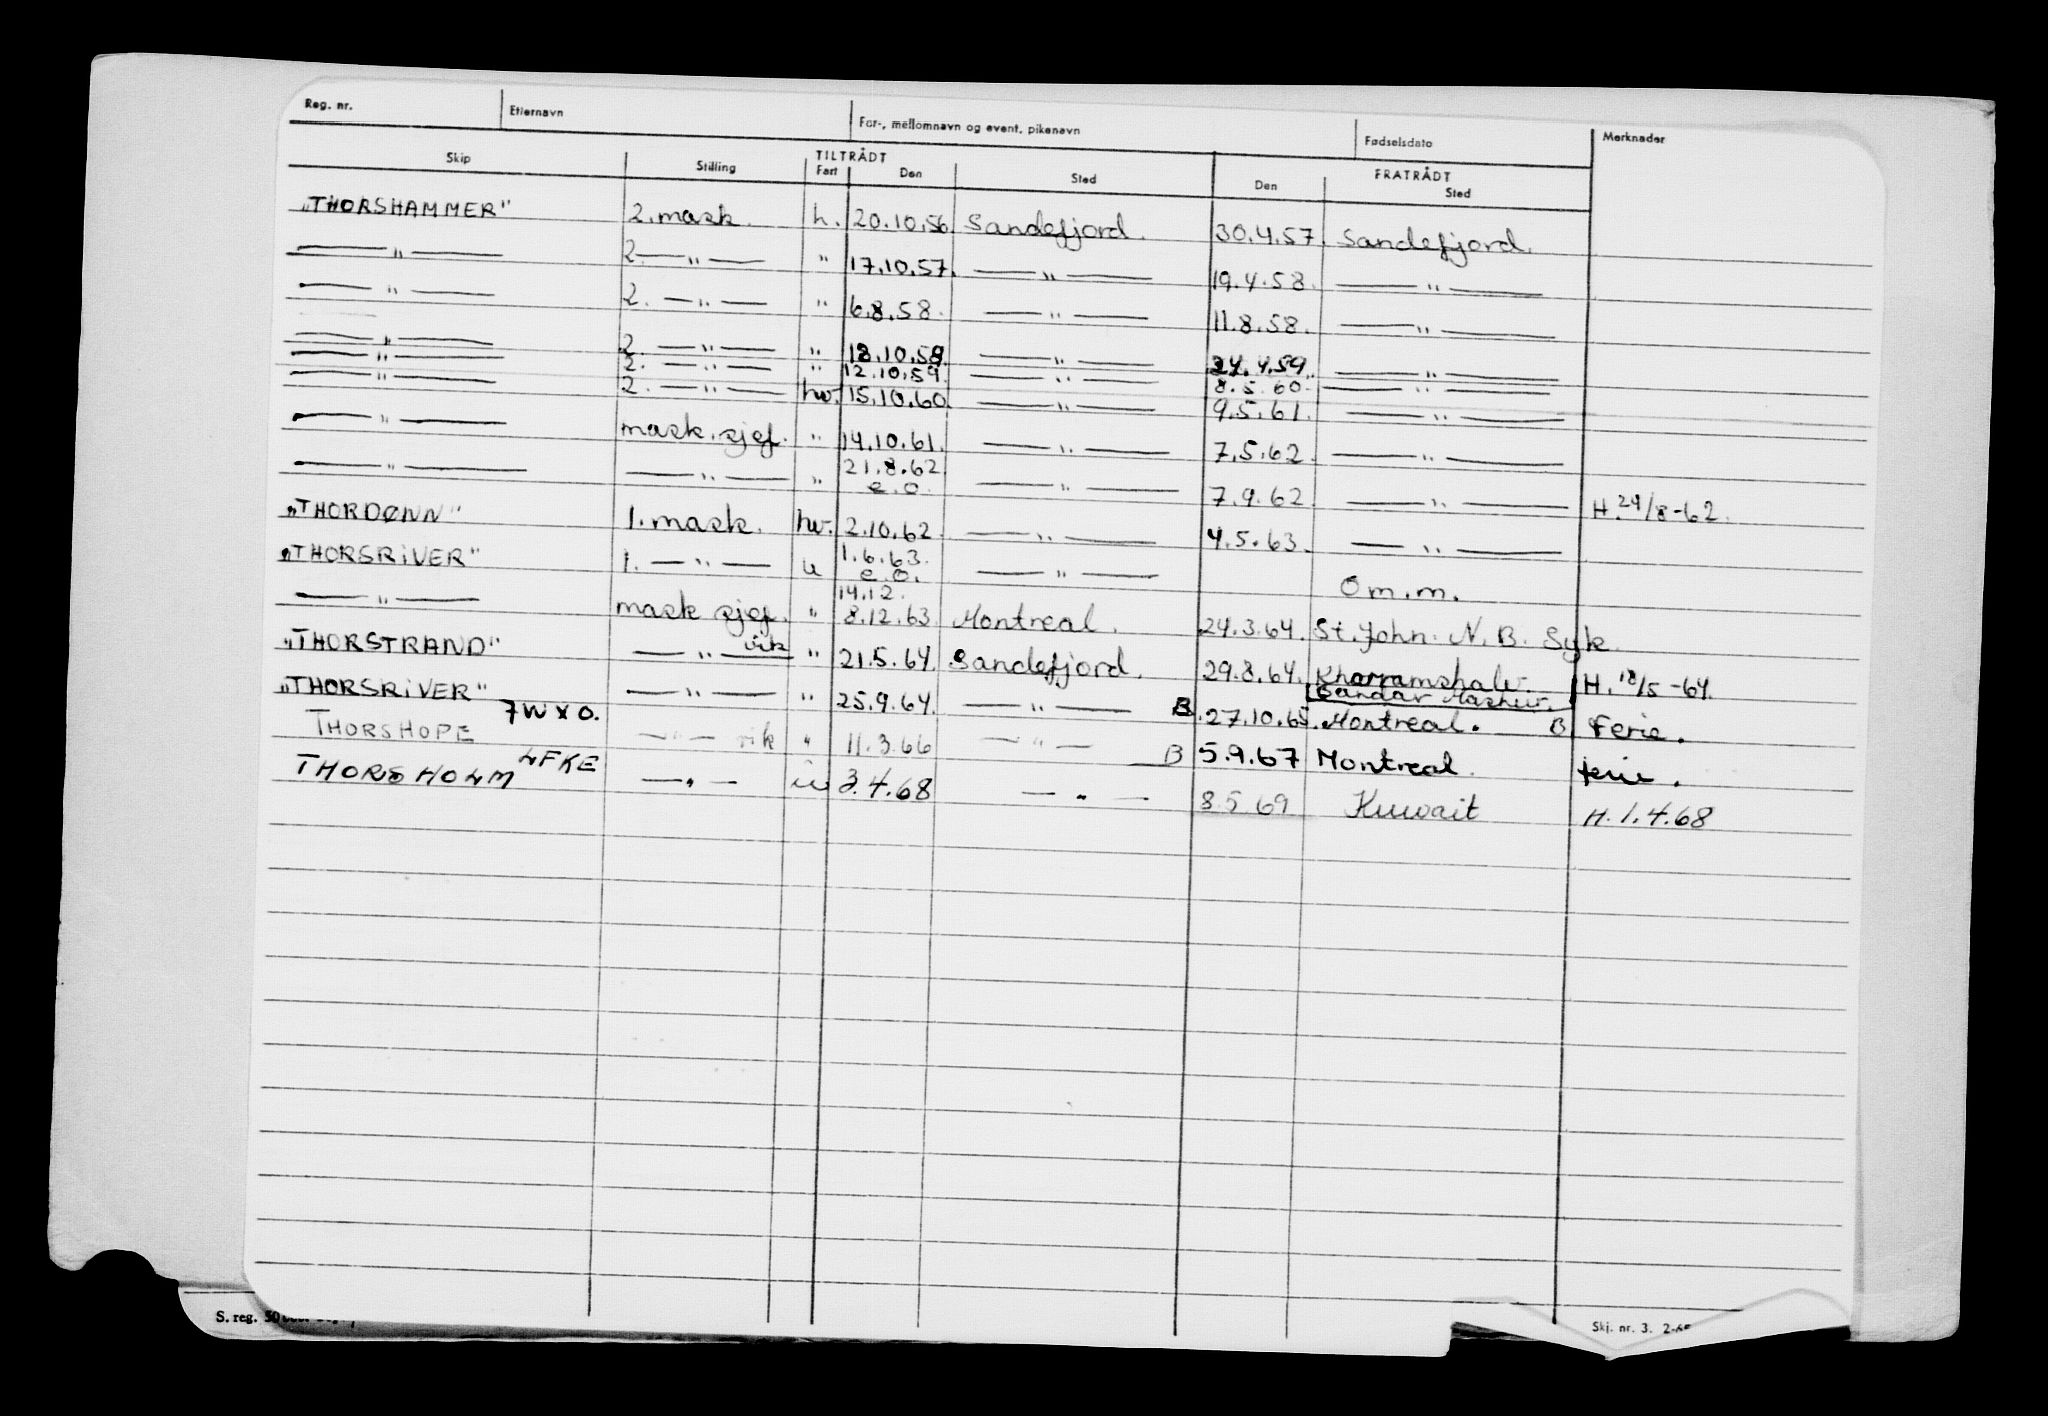 Reg. nr. Etternavn For-, mellomnavn og event. pikenavn Fødselsdato Merknader
Skip Stilling TILTRÅDT Fart Den Sted FRATRÅDT Den Sted
"THORSHAMMER" 2. mask. h. 20.10.56. Sandefjord. 30.4.57. Sandefjord.
— " — 2. — " — " 17.10.57. — " — 19.4.58. — " —
— " — 2. — " — " 6.8.58. — " — 11.8.58. — " —
— " — 2. — " — " 18.10.58. — " — 24.4.59. — " —
— " — 2. — " — " 12.10.59. — " — 8.5.60. — " —
— " — 2. — " — hv. 15.10.60. — " — 9.5.61. — " —
— " — mask. sjef. " 14.10.61. — " — 7.5.62. — " —
— " — — " — " 21.8.62 e.o. — " — 7.9.62 — " — H. 29/8-62.
"THORDØNN" 1. mask. hv. 2.10.62. — " — 4.5.63. — " —
"THORSRIVER" 1. — " — u 1.6.63. e.o. — " — Om.m.
— " — mask sjef. " 14.12. 8.12.63. Montreal. 24.3.64. St. John. N. B. Syk.
"THORSTRAND" — " — vik " 21.5.64. Sandefjord. 29.8.64. H. 18/5-64.
"THORSRIVER" — " — " 25.9.64. — " — B. 27.10.65. Montreal. B Ferie.
THORSHOPE 7WXO. — " — vik " 11.3.66 — " — B 5.9.67 Montreal. ferie.
THORSHOLM LFKE — " — 3.4.68 — " — 8.5.69 Kuwait H. 1.4.68
S. reg. Skj. nr. 3.